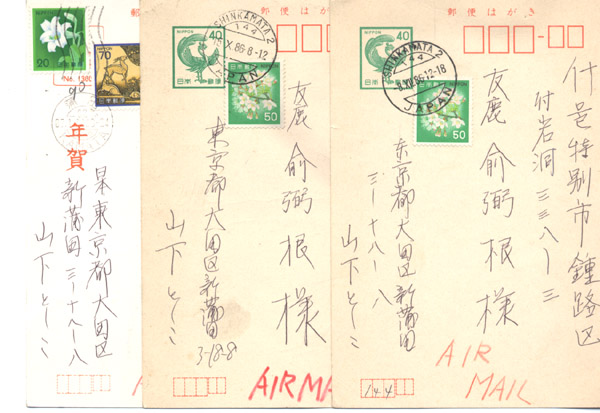 20
NIPPON
70
日本郵便
年賀
日本東京都大田区
新蒲田 三-十八-八
山下としこ
郵便はがき
NIPPON
40
日本郵便
SHINKAMATA 2
144
X.86.8-12
JAPAN
50
友鹿 俞弼根様
東京都大田区新蒲田
3-18-8
山下としこ
AIRMA
郵便はがき
NIPPON
40
日本郵便
SHINKAMATA 2
144
JAPAN
50
什邑特別市鍾路区
付岩洞 三三八-三
友鹿 俞弼根様
東京都大田区新蒲田
三-十八-八
山下とし子
144
AIR
MAIL